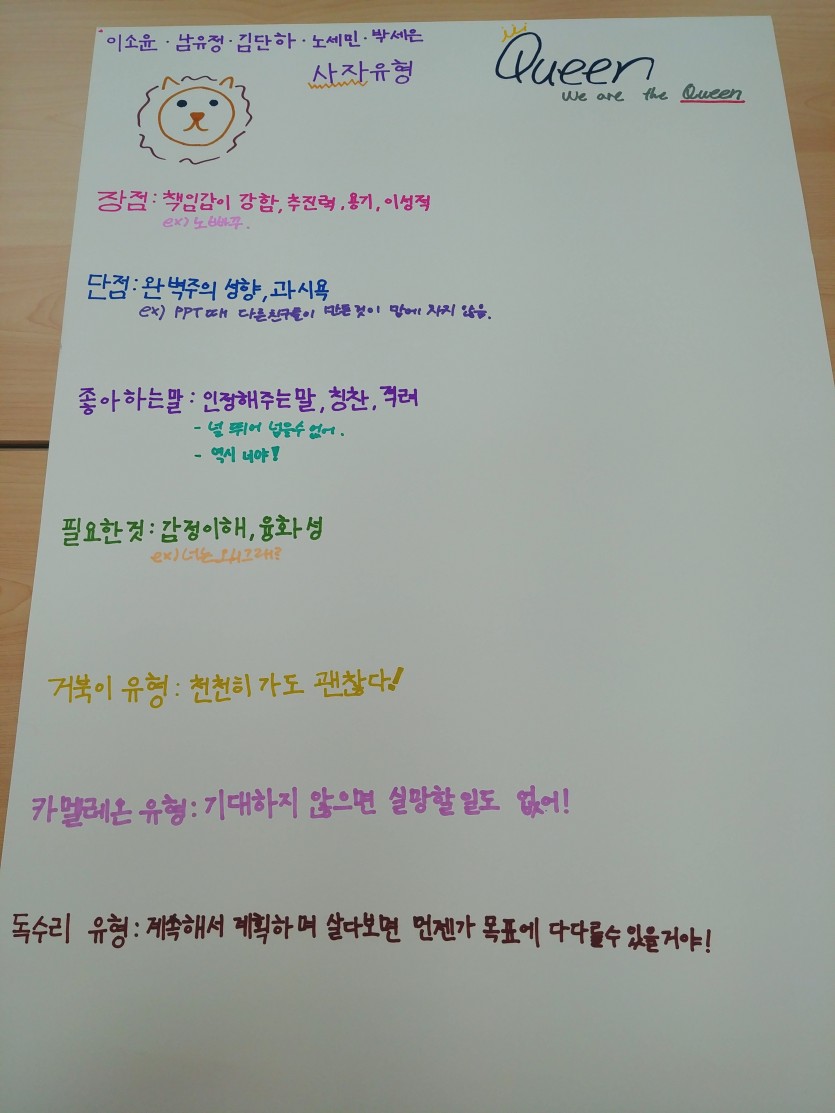 이소윤 · 남유정 · 김단하 · 노세민 · 박세은
사자유형
Queen
We are the Queen
장점 : 책임감이 강함, 추진력, 용기, 이성적
ex) 노빠꾸.
단점 : 완벽주의 성향, 과시욕
ex) PPT때 다른친구들이 만든것이 맘에 차지 않음.
좋아하는말 : 인정해주는말, 칭찬, 격려
- 널 뛰어 넘을수 없어.
- 역시 너야!
필요한것 : 감정이해, 융화성
ex) 너는
거북이 유형 : 천천히가도 괜찮다!
카멜레온 유형 : 기대하지 않으면 실망할일도 없어!
독수리 유형 : 계속해서 계획하며 살다보면 언젠가 목표에 다다를수 있을거야!